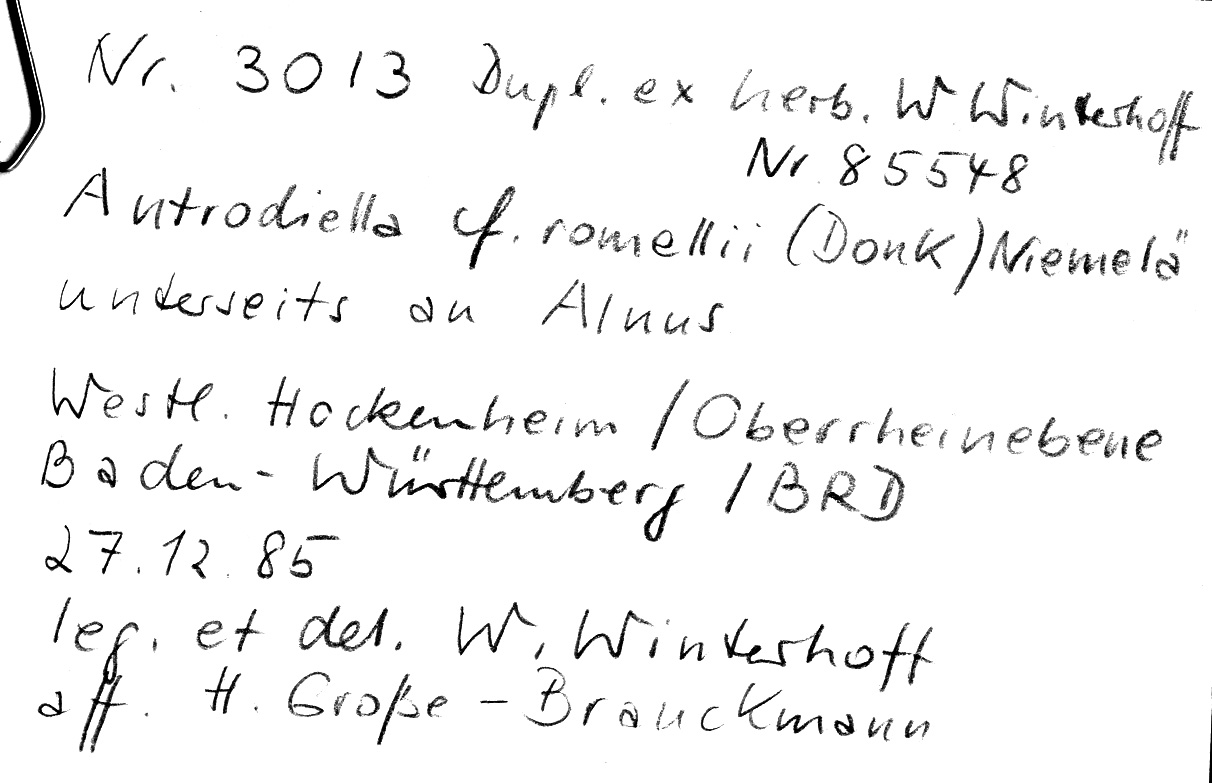 Nr. 3013 Dupl. ex herb. W Winterhoff
Nr. 85548
Antrodiella cf. romellii (Donk) Niemelä
unterseits an Alnus
Westl. Hockenheim / Oberrheinebene
Baden-Württemberg / BRD
27.12.85
leg. et det. W. Winterhoff
aff. H. Große-Brauckmann